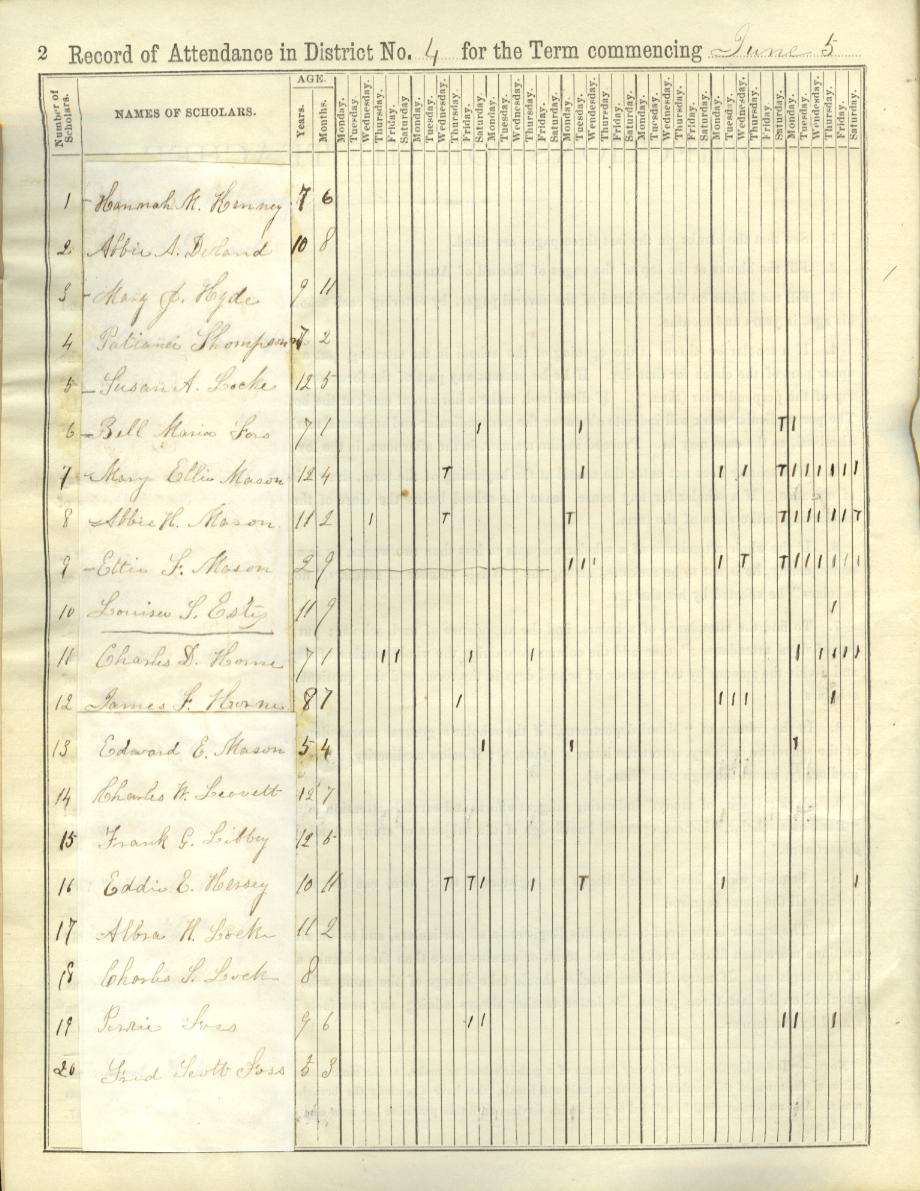 2 Record of Attendance in District No. 4 for the Term commencing June 5
Number of Scholars. NAMES OF SCHOLARS. AGE. Years. Months. Monday. Tuesday. Wednesday. Thursday. Friday. Saturday Monday. Tuesday. Wednesday. Thursday Friday. Saturday. Monday. Tuesday. Wednesday. Thursday. Friday. Saturday. Monday. Tuesday. Wednesday. Thursday Friday. Saturday. Monday. Tuesday. Wednesday. Thursday. Friday. Saturday. Monday. Tuesday. Wednesday. Thursday. Friday. Saturday. Monday. Tuesday. Wednesday. Thursday. Friday. Saturday.
1 - Hannah M. 7 6
2 Abbie A. 10 8
3 - Mary J. Hyde 9 11
4 Thompson 7 2
5 - Susan A. Locke 12 5
6 - Bell Maria Foss 7 1 1 1 T 1
7 - Mary Ellie Mason 12 4 T 1 1 1 T 1 1 1 1 1 1
8 - Abbie H. Mason. 11 2 1 T T T 1 1 1 1 1 T
9 - Ettie F. Mason 9 1 1 1 1 T T 1 1 1 1 1 1
10 Louisa S. Esty 11 9 1
11 Charles D. Horne 7 1 1 1 1 1 1 1 1 1 1
12 James F. Horne 8 7 1 1 1 1 1
13 Edward E. Mason 5 4 1 1 1
14 Charles W. Leavett 12 7
15 Frank G. Libbey 12 5
16 Eddie E. Hersey 10 11 T T 1 1 T 1 1
17 Albra H. Lock 11 2
18 Charles S. Lock 8
19 Perrie Foss 9 6 1 1 1 1 1
20 Fred Scott Foss 5 3